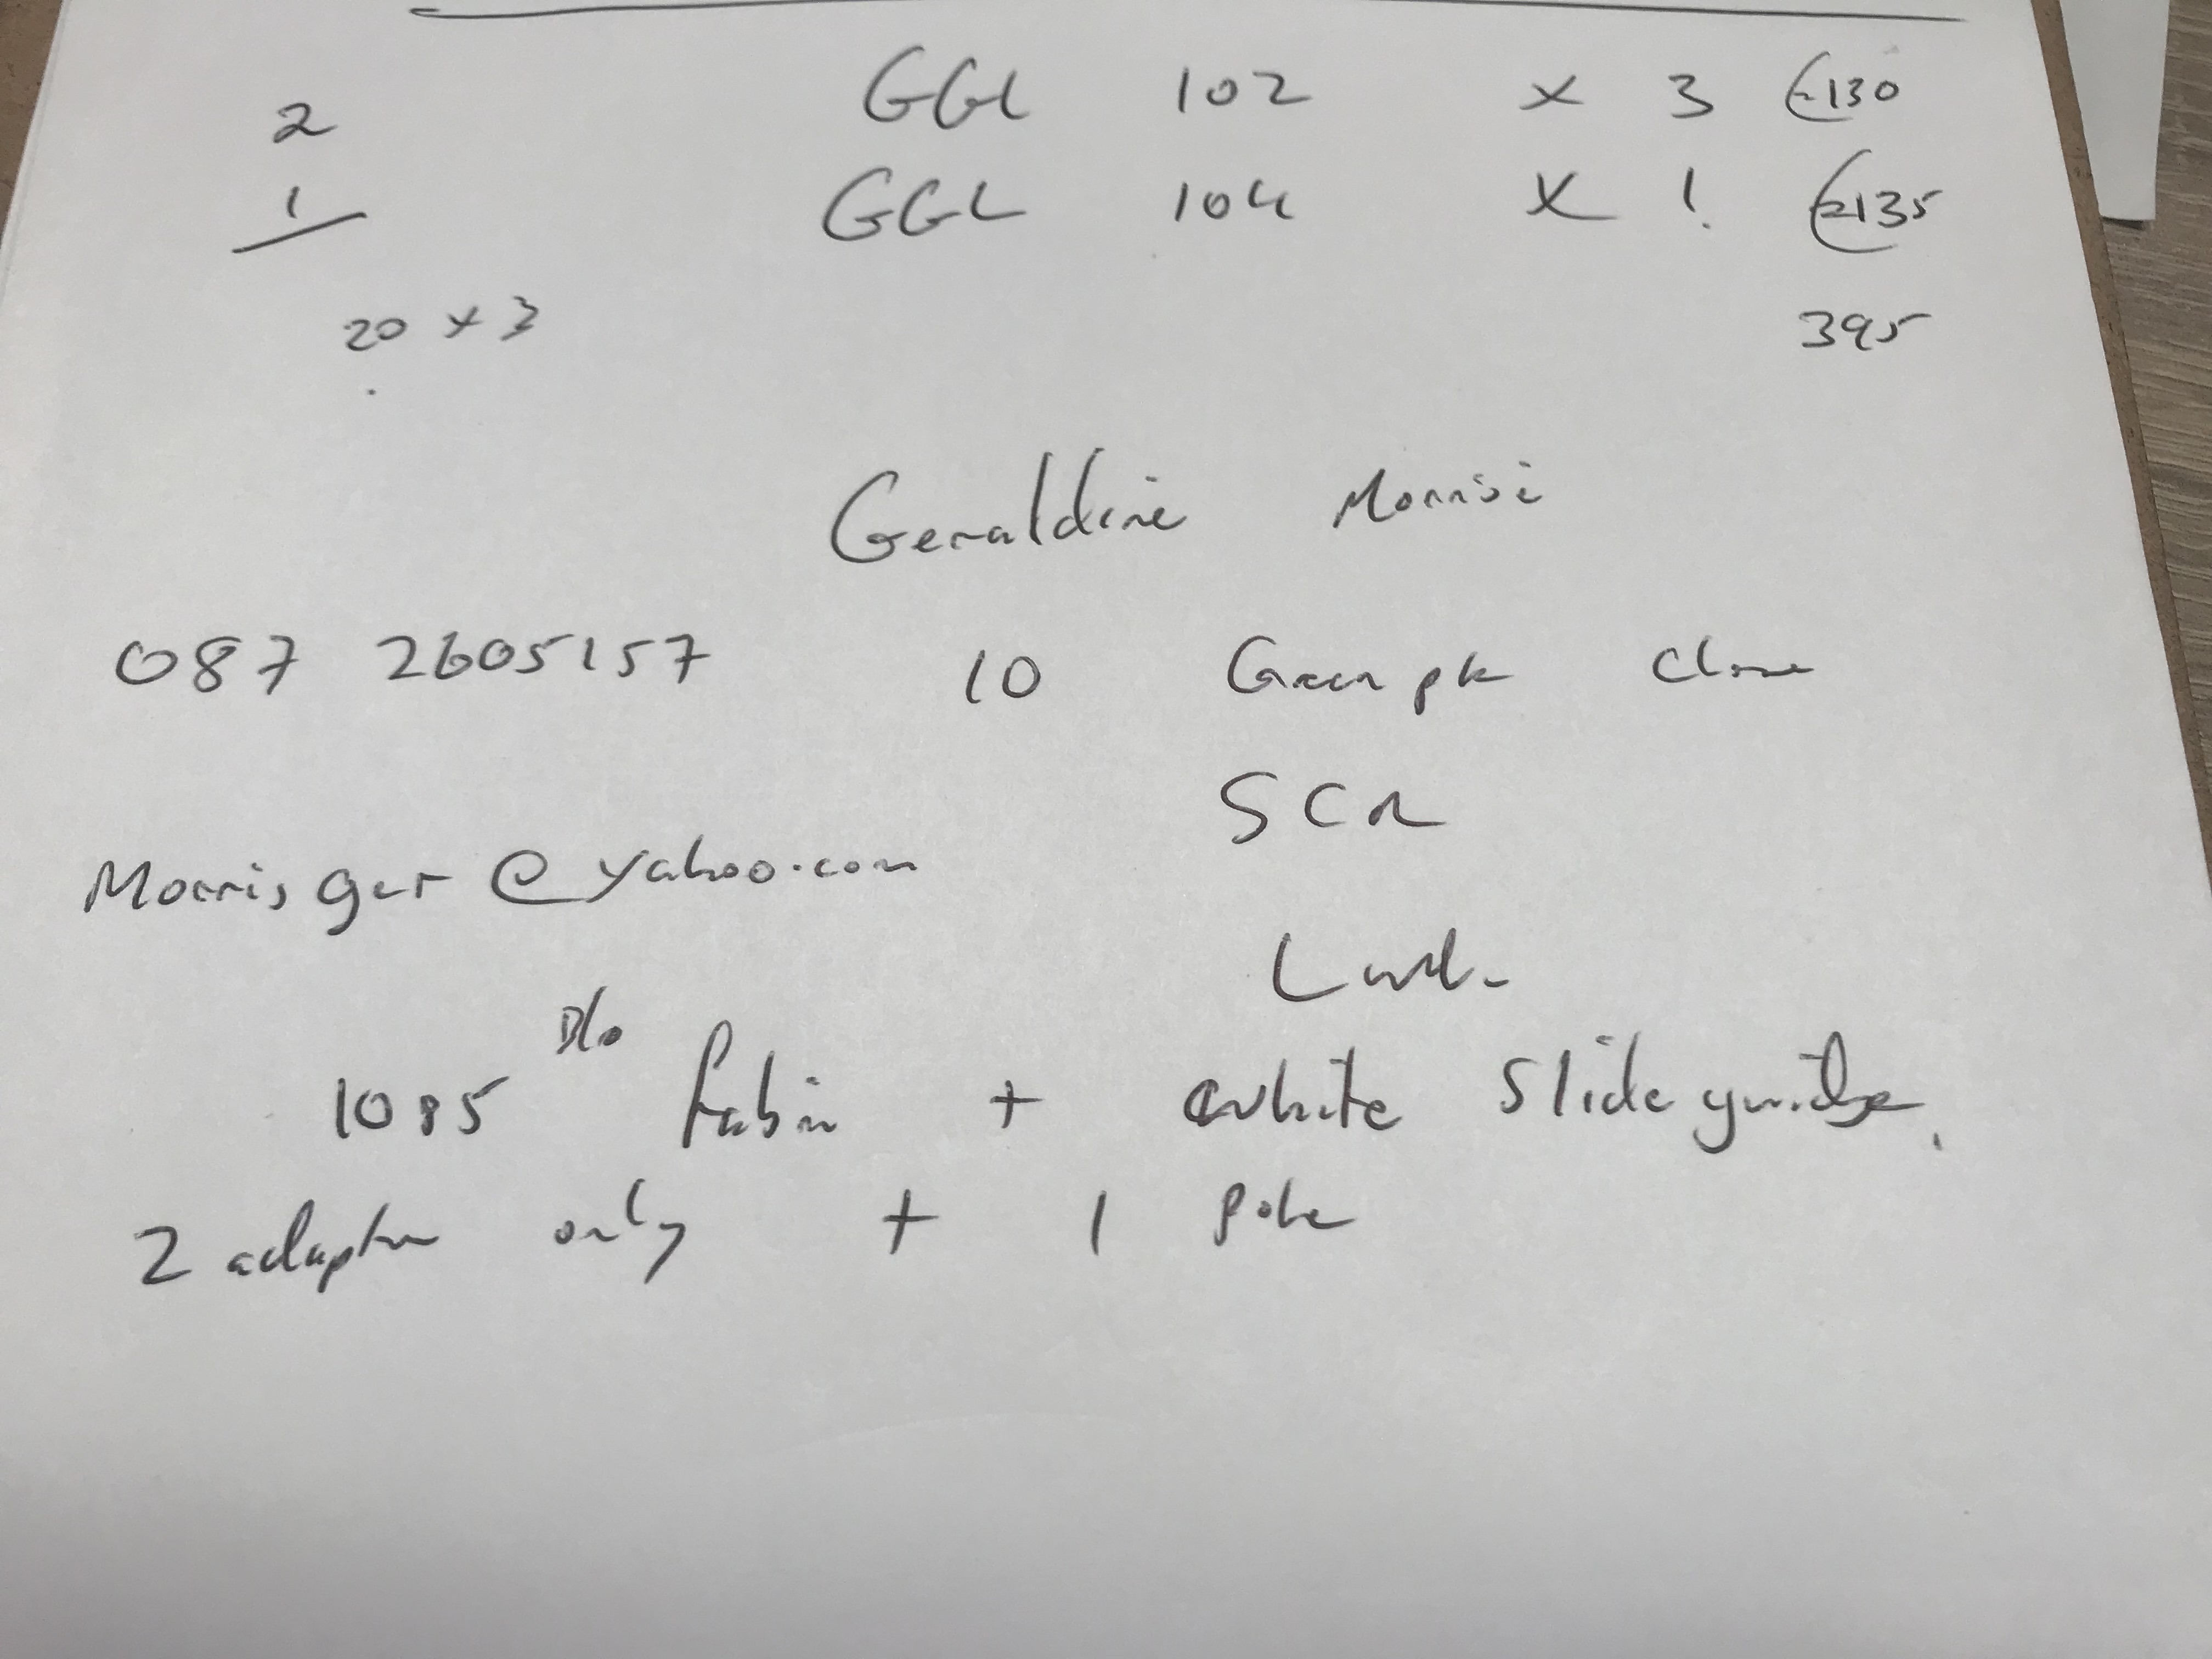 2 GGL 102 x 3 €130
1 GGL 104 x 1 €135
20 x 3 395
Geraldine
087 2605157 10 Green pk Close
SCR
Morrisger@yahoo.com
1085 B/o fabric + white Slide guide.
2 adapter only + 1 pole